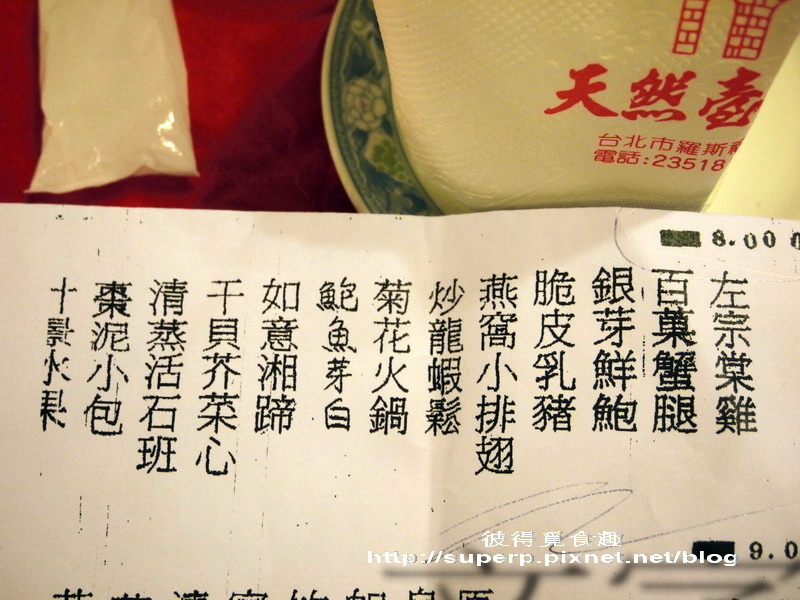 天然壺
台北市羅斯
電話:23518
8.00
左宗棠雞
百菓蟹腿
銀芽鮮鮑
脆皮乳豬
燕窩小排翅
炒龍蝦鬆
菊花火鍋
鮑魚芽白
如意湘蹄
干貝芥菜心
清蒸活石班
棗泥小包
十景水果
彼得覓食趣
http://superp.pixnet.net/blog
9.0